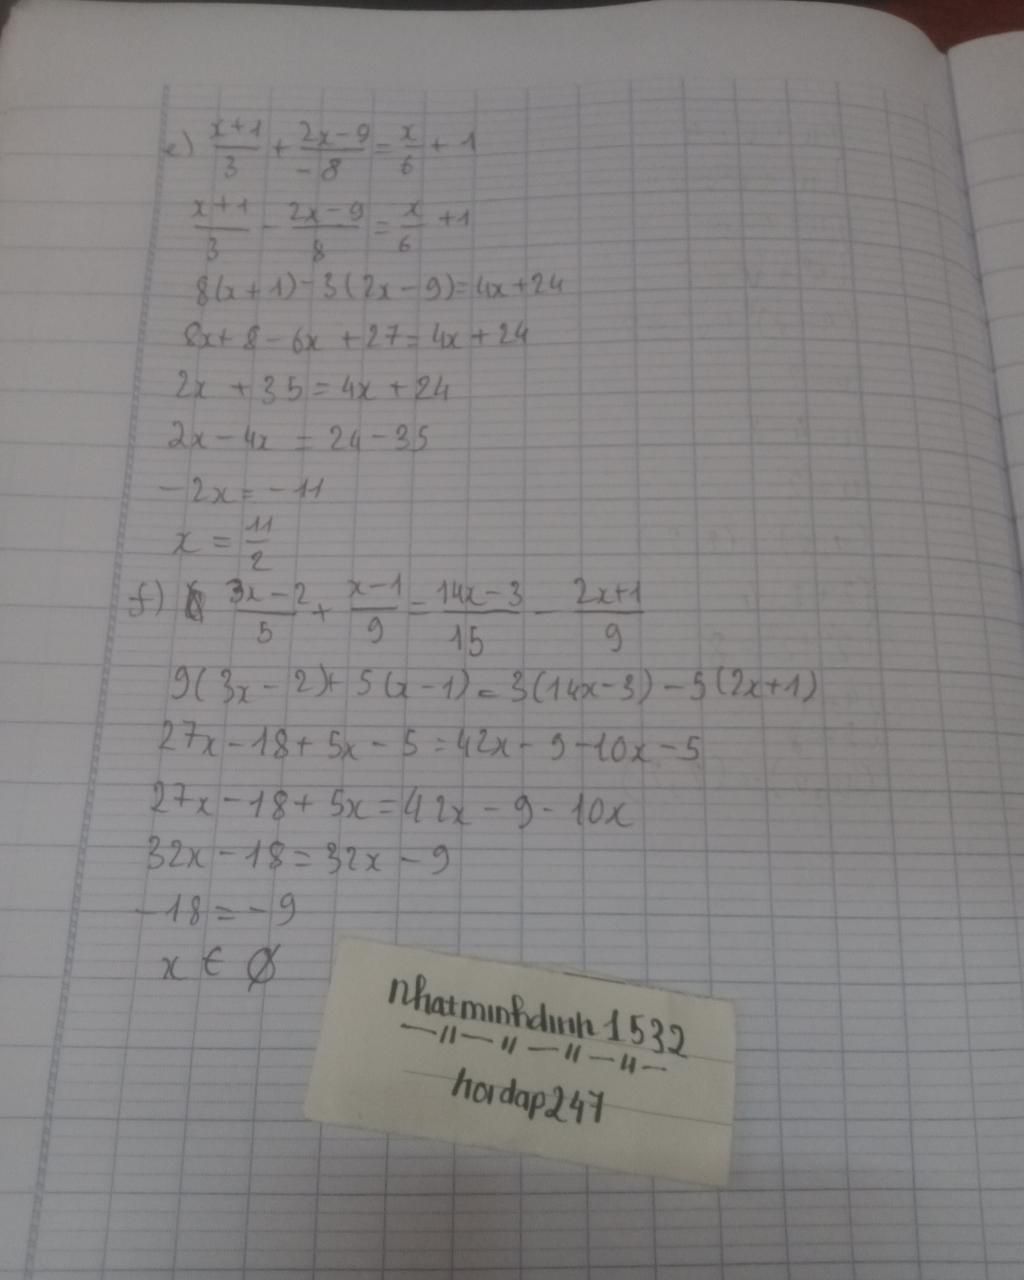 e) (x+1)/3 + (2x-9)/(-8) = x/6 + 1
(x+1)/3 - (2x-9)/8 = x/6 + 1
8(x+1) - 3(2x-9) = 4x+24
8x+8-6x+27=4x+24
2x+35=4x+24
2x-4x=24-35
-2x=-11
x=11/2
f) (3x-2)/5 + (x-1)/9 = (14x-3)/15 - (2x+1)/9
9(3x-2)+5(x-1)=3(14x-3)-5(2x+1)
27x-18+5x-5=42x-9-10x-5
27x-18+5x=42x-9-10x
32x-18=32x-9
-18=-9
x ∈ ∅
nhatminhdinh1532
hoidap247